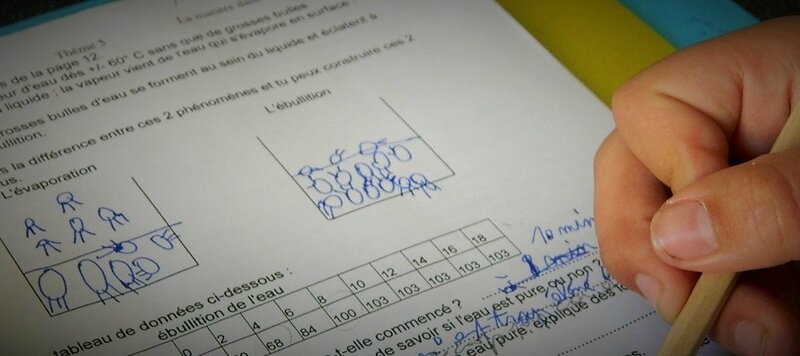 Thème 5
La matière dans
s de la page 12.
eur d'eau dès +/- 60° C sans que de grosses bulles
liquide ; la vapeur vient de l'eau qui s'évapore en surface.
rosses bulles d'eau se forment au sein du liquide et éclatent à
ullition.
s la différence entre ces 2 phénomènes et tu peux construire ces 2
us.
L'évaporation
L'ébullition
tableau de données ci-dessous :
ébullition de l'eau
0 2 4 6 8 10 12 14 16 18
68 84 100 103 103 103 103 103 103
10 min
t-elle commencé ?
de savoir si l'eau est pure ou non ?
eau pure, explique des